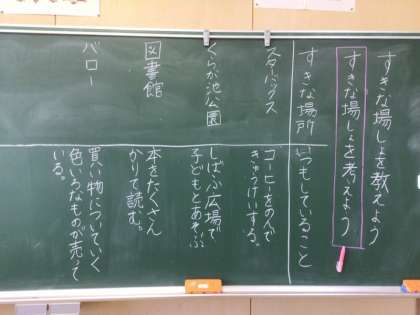 すきな場しょを教えよう
すきな場しょを考えよう
すきな場所
いつもしていること
スターバックス
コーヒーをのんで
きゅうけいする。
くらが池公園
しばふ広場で
子どもとあそぶ
図書館
本をたくさん
かりて読む。
バロー
買い物についていく
色いろなものが売って
いる。